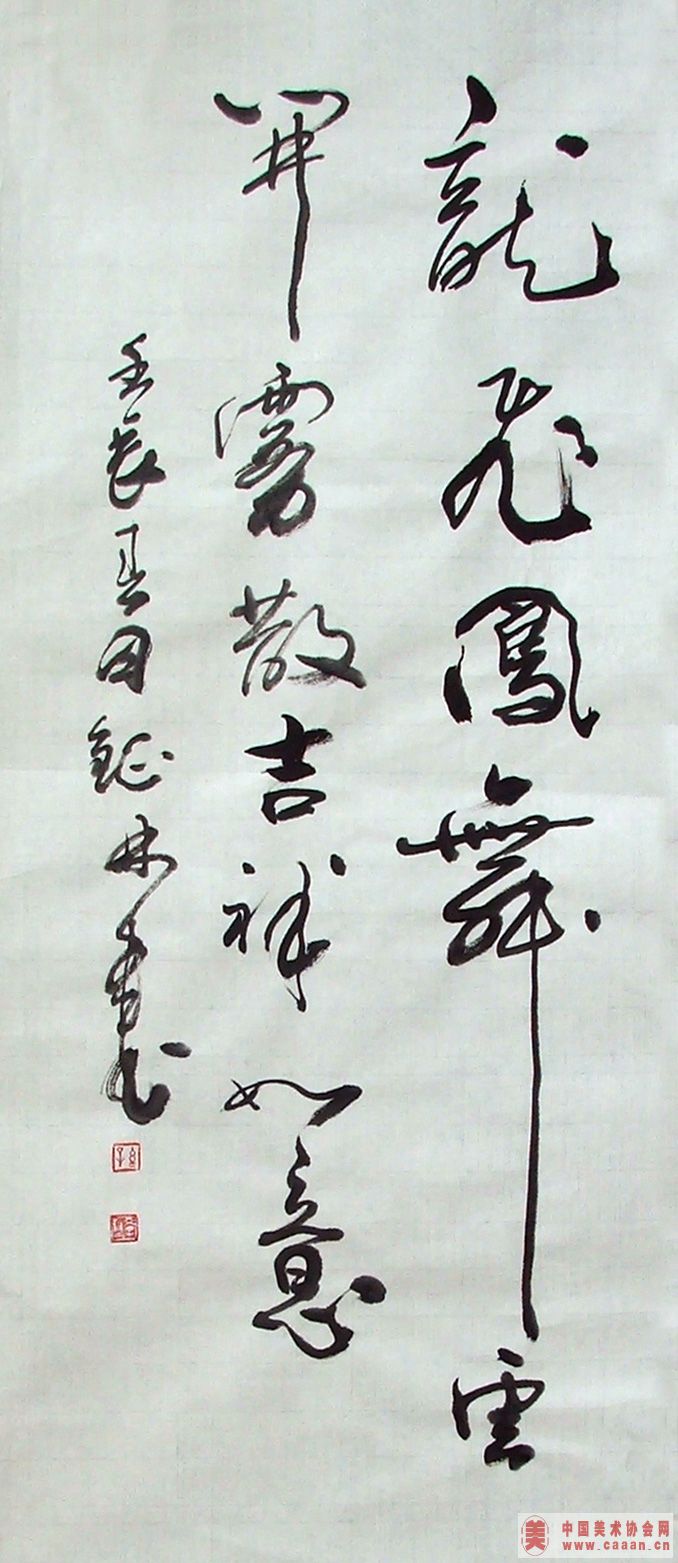 龍飛鳳舞雲
開霧散吉祥如意
壬辰春月 林書
中国美术协会网
www.caaan.cn